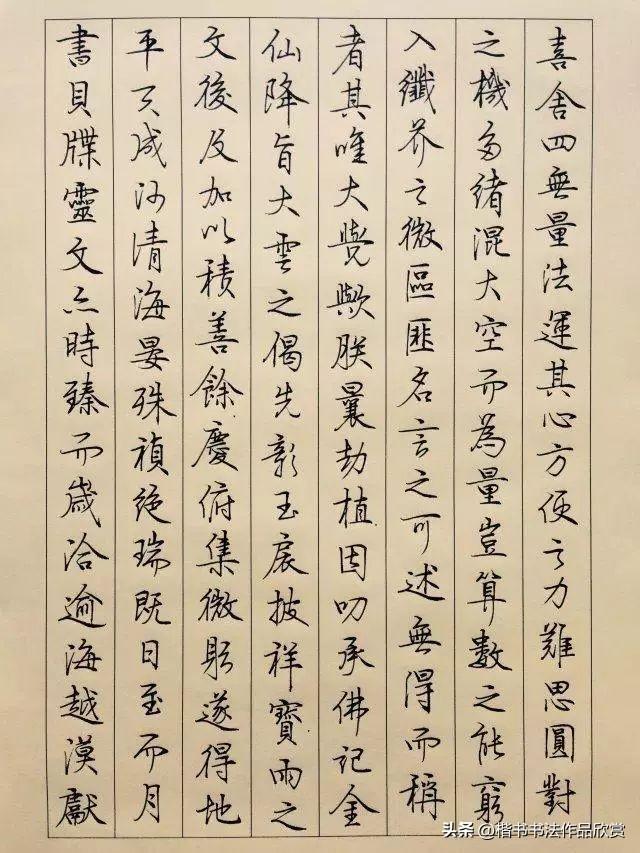 喜舍四無量法運其心方便之力難思圓對
之機多緒混大空而為量豈算數之能窮
入纖芥之微區匪名言之可述無得而稱
者其唯大覺歟朕曩劫植因叨承佛記金
仙降旨大雲之偈先彰玉扆披祥寶雨之
文後及加以積善餘慶俯集微躬遂得地
平天成河清海晏殊禎絕瑞既日至而月
書貝牒靈文亦時臻而歲洽逾海越漠獻
头条 @楷书书法作品欣赏